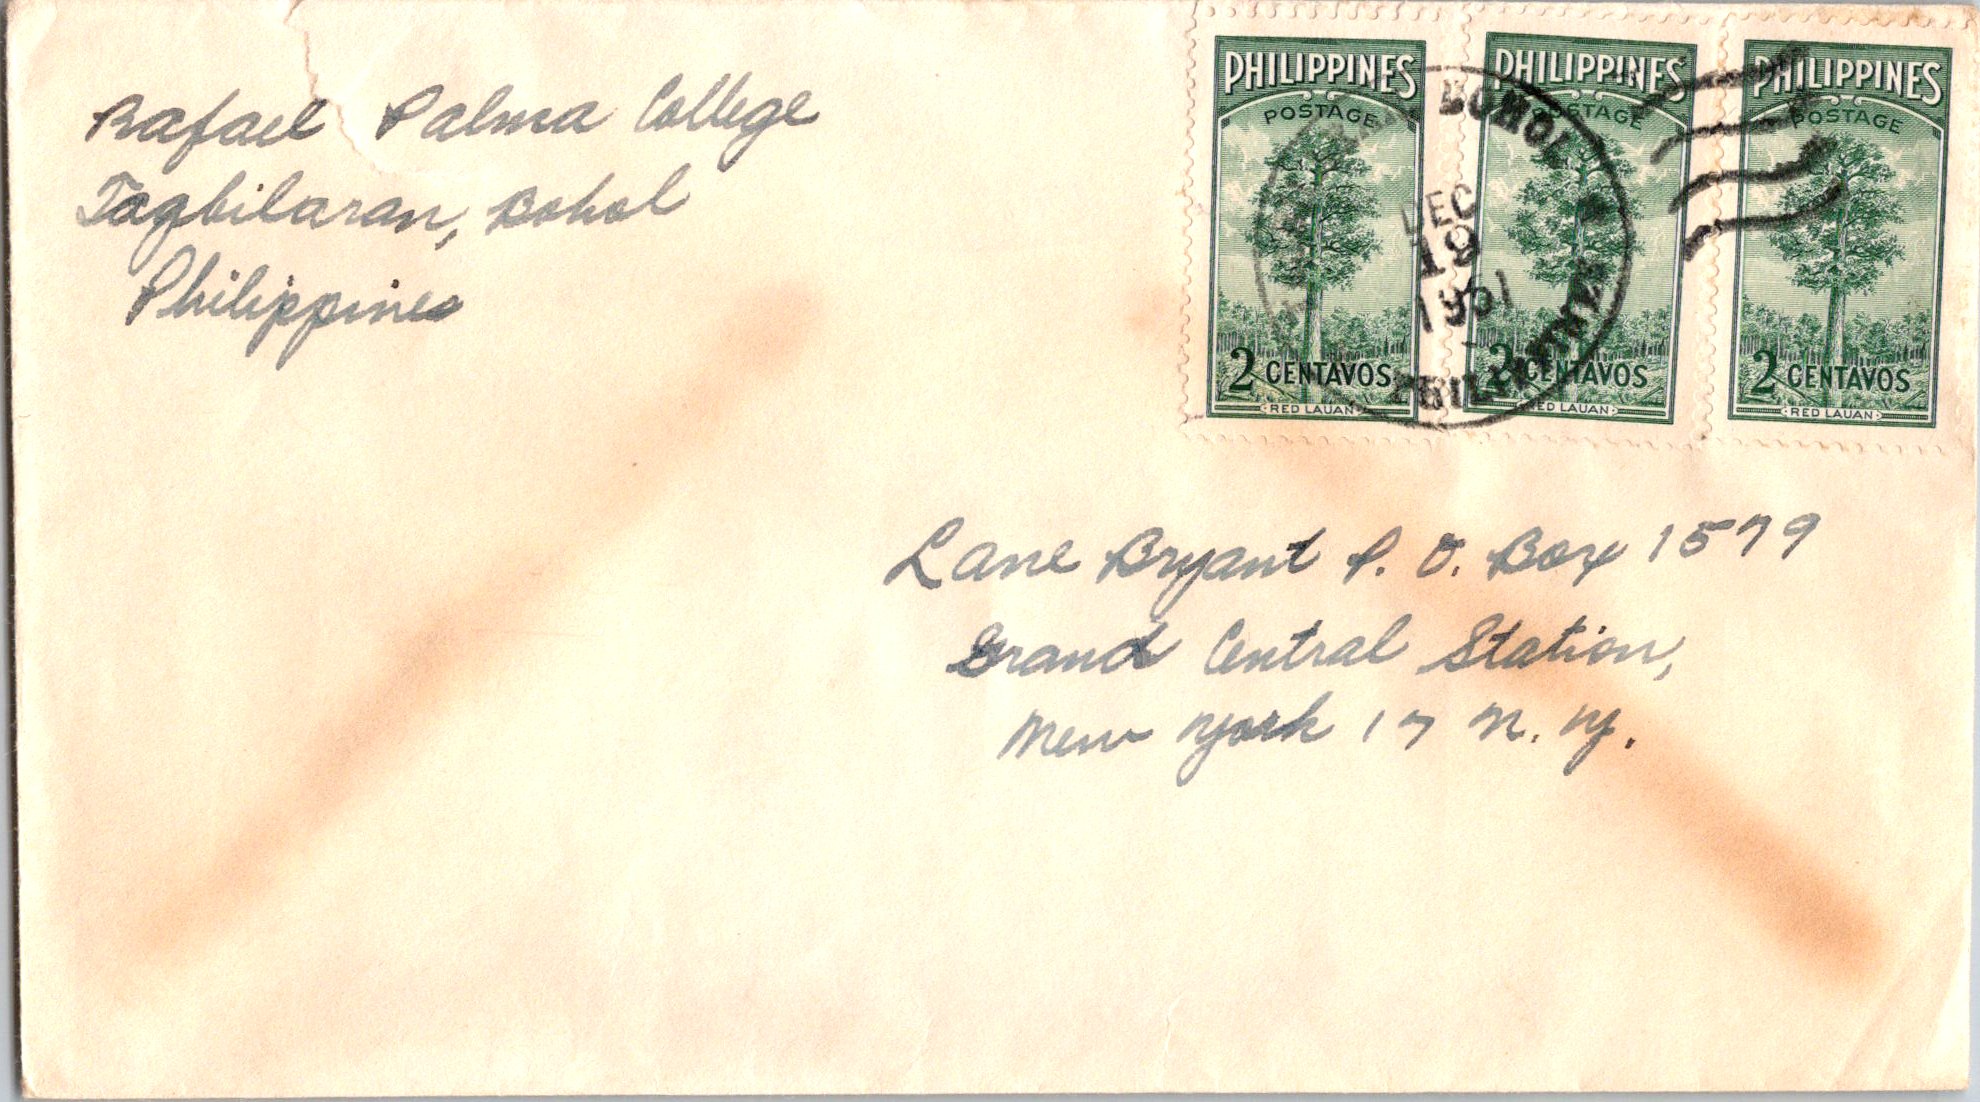 Rafael Palma College
Tagbilaran, Bohol
Philippines
PHILIPPINES
POSTAGE
2 CENTAVOS
RED LAUAN
PHILIPPINES
POSTAGE
2 CENTAVOS
RED LAUAN
PHILIPPINES
POSTAGE
2 CENTAVOS
RED LAUAN
BOHOL
DEC
19
1951
PHILIPPINES
Lane Bryant P. O. Box 1579
Grand Central Station,
New York 17 N. Y.